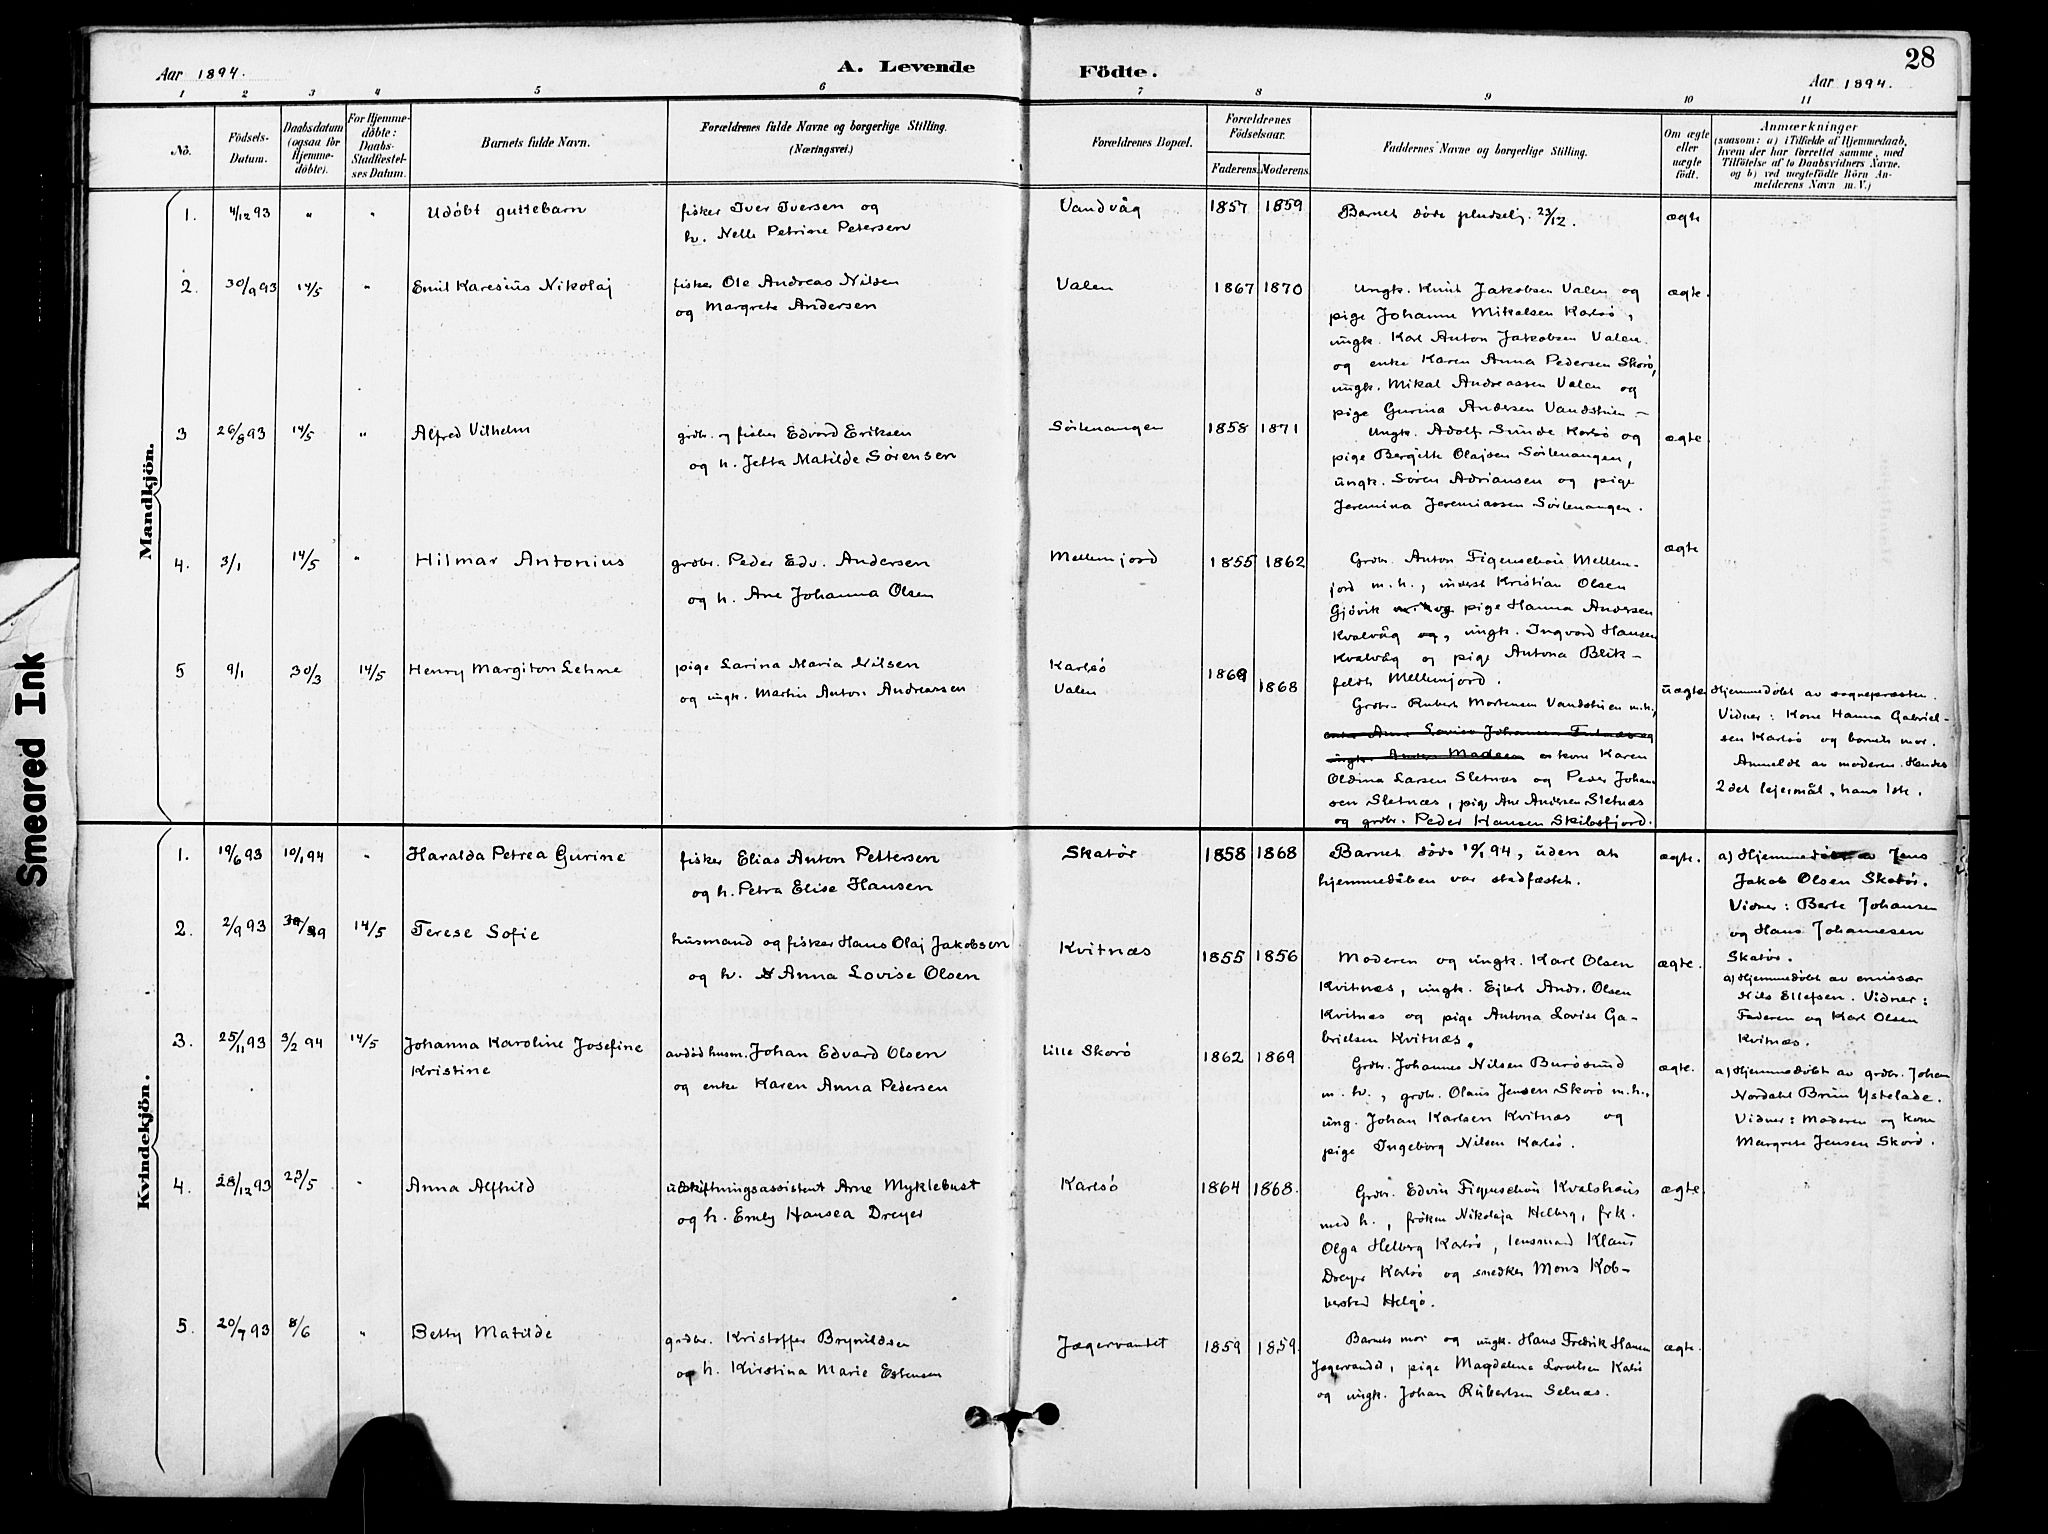 28
Aar 1894.
A. Levende Födte.
Aar 1894.
1 2 3 4 5 6 7 8 9 10 11
No.
Födsels-Datum.
Daabsdatum (ogsaa for Hjemmedøbte).
For Hjemmedøbte: Daabs-Stadfæstelses Datum.
Barnets fulde Navn.
Forældrenes fulde Navne og borgerlige Stilling.
(Næringsvei.)
Forældrenes Bopæl.
Forældrenes Födselsaar.
Faderens. Moderens.
Faddernes Navne og borgerlige Stilling.
Om ægte eller uægte født.
Anmærkninger
(saasom: a) i Tilfælde af Hjemmedaab, hvem der har forrettet samme, med Tilföielse af to Daabsvidners Navne, og b) ved uægtefödte Börn Anmelderens Navn m. V.)
Mandkjön.
1. 4/12 93 " " Udöbt guttebarn
fisker Iver Iversen og
h. Nelle Petrine Petersen
Vandvåg 1857 1859
Barnet döde pludselig 23/12.
ægte
2. 30/9 93 14/5 " Emil Karesius Nikolaj
fisker Ole Andreas Nilsen
og Margrete Andersen
Valen 1867 1870
Ungk. Knut Jakobsen Valen og
pige Johanne Mikalsen Karlsö,
ungk. Karl Anton Jakobsen Valen
og enke Karen Anna Pedersen Skorö,
ungk. Mikal Andreassen Valen og
pige Gurina Andersen Vandstuen –
ægte.
3 26/8 93 14/5 " Alfred Vilhelm
grdbr. og fisker Edvard Eriksen
og h. Jetta Matilde Sörensen
Sörlenangen 1858 1871
Ungk. Adolf Sunde Karlsö og
pige Bergitte Olajsen Sörlenangen,
ungk. Sören Adriansen og pige
Jeremina Jeremiassen Sörlenangen.
ægte
4. 3/1 14/5 " Hilmar Antonius
grdbr. Peder Edv. Andersen
og h. Ane Johanna Olsen
Mellemjord 1855 1862
Grdbr. Anton Figenschou Mellem-
jord m.h., inderst Kristian Olsen
Gjövik pige Hanna Andersen
Kvalvåg og, ungk. Ingvard Hansen
Kvalvåg og pige Antona Blik-
feldt Mellemjord.
ægte
5 9/1 30/3 14/5 Henry Margiton Lehne
pige Larina Maria Nilsen
og ungk. Martin Anton Andreassen
Karlsö
Valen
1869 1868
Grdbr. Rubert Mortensen Vandstuen m.h.,
enke Anne Lovise Johansen og
ungk. Anders Madsen kone Karen
Oldina Larsen Sletnæs og Peder Johan-
sen Sletnæs, pige Ane Andersen Sletnæs
og grdbr. Peder Hansen Skibsfjord.
uægte
Hjemmedöbt av sognepræsten.
Vidner: Kone Hanna Gabriel-
sen Karlsö og barnets mor.
Anmeldt av moderen. Hendes
2det lejermål, hans 1ste.
Kvindekjön.
1. 19/6 93 10/1 94 " Haralda Petrea Gurine
fisker Elias Anton Pettersen
og h. Petra Elise Hansen
Skatör 1858 1868
Barnet döde 19/1 94, uden at
hjemmedåben var stadfæstet.
ægte.
a) Hjemmedöbt av Jens
Jakob Olsen Skatör.
Vidner: Berte Johansen
og Hans Johannesen
Skatör.
2. 2/9 93 14/5 Terese Sofie
husmand og fisker Hans Olaj Jakobsen
og h. Anna Lovise Olsen
Kvitnæs 1855 1856
Moderen og ungk. Karl Olsen
Kvitnæs, ungk. Ejlert Andr. Olsen
Kvitnæs og pige Antona Lovise Ga-
brielsen Kvitnæs.
ægte.
a) Hjemmedöbt av emissær
Nils Ellefsen. Vidner:
Faderen og Karl Olsen
Kvitnæs.
3. 25/11 93 3/2 94 14/5 Johanna Karoline Josefine
Kristine
avdöd husm. Johan Edvard Olsen
og enke Karen Anna Pedersen
Lille Skorö 1862 1869
Grdbr. Johannes Nilsen Burösund
m. h., grdbr. Olaus Jensen Skorö m.h.,
ung. Johan Karlsen Kvitnæs og
pige Ingeborg Nilsen Karlsö.
ægte.
a) Hjemmedöbt av grdbr. Johan
Nordahl Brun Ystelade.
Vidner: Moderen og kone
Margrete Jensen Skorö.
4. 28/12 93 23/5 " Anna Alfhild
udskiftningsassistent Arne Myklebust
og h. Emly Hansea Dreyer
Karlsö 1864 1868.
Grdbr. Edvin Figenschou Kvalshaus
med h., fröken Nikolaja Helberg, frk.
Olga Helberg Karlsö, lensmand Klaus
Dreyer Karlsö og snedker Mons Kob-
berstad Helgö.
ægte.
5. 20/7 93 8/6 " Betty Matilde
grdbr. Kristoffer Brynildsen
og h. Kirstina Marie Estensen
Jægervantet 1859 1859.
Barnets mor og ungk. Hans Fredrik Hansen
Jægervandet, pige Magdalena Lorentsen Karlsö
og ungk. Johan Rubertsen Selnæs.
ægte.
Smeared Ink